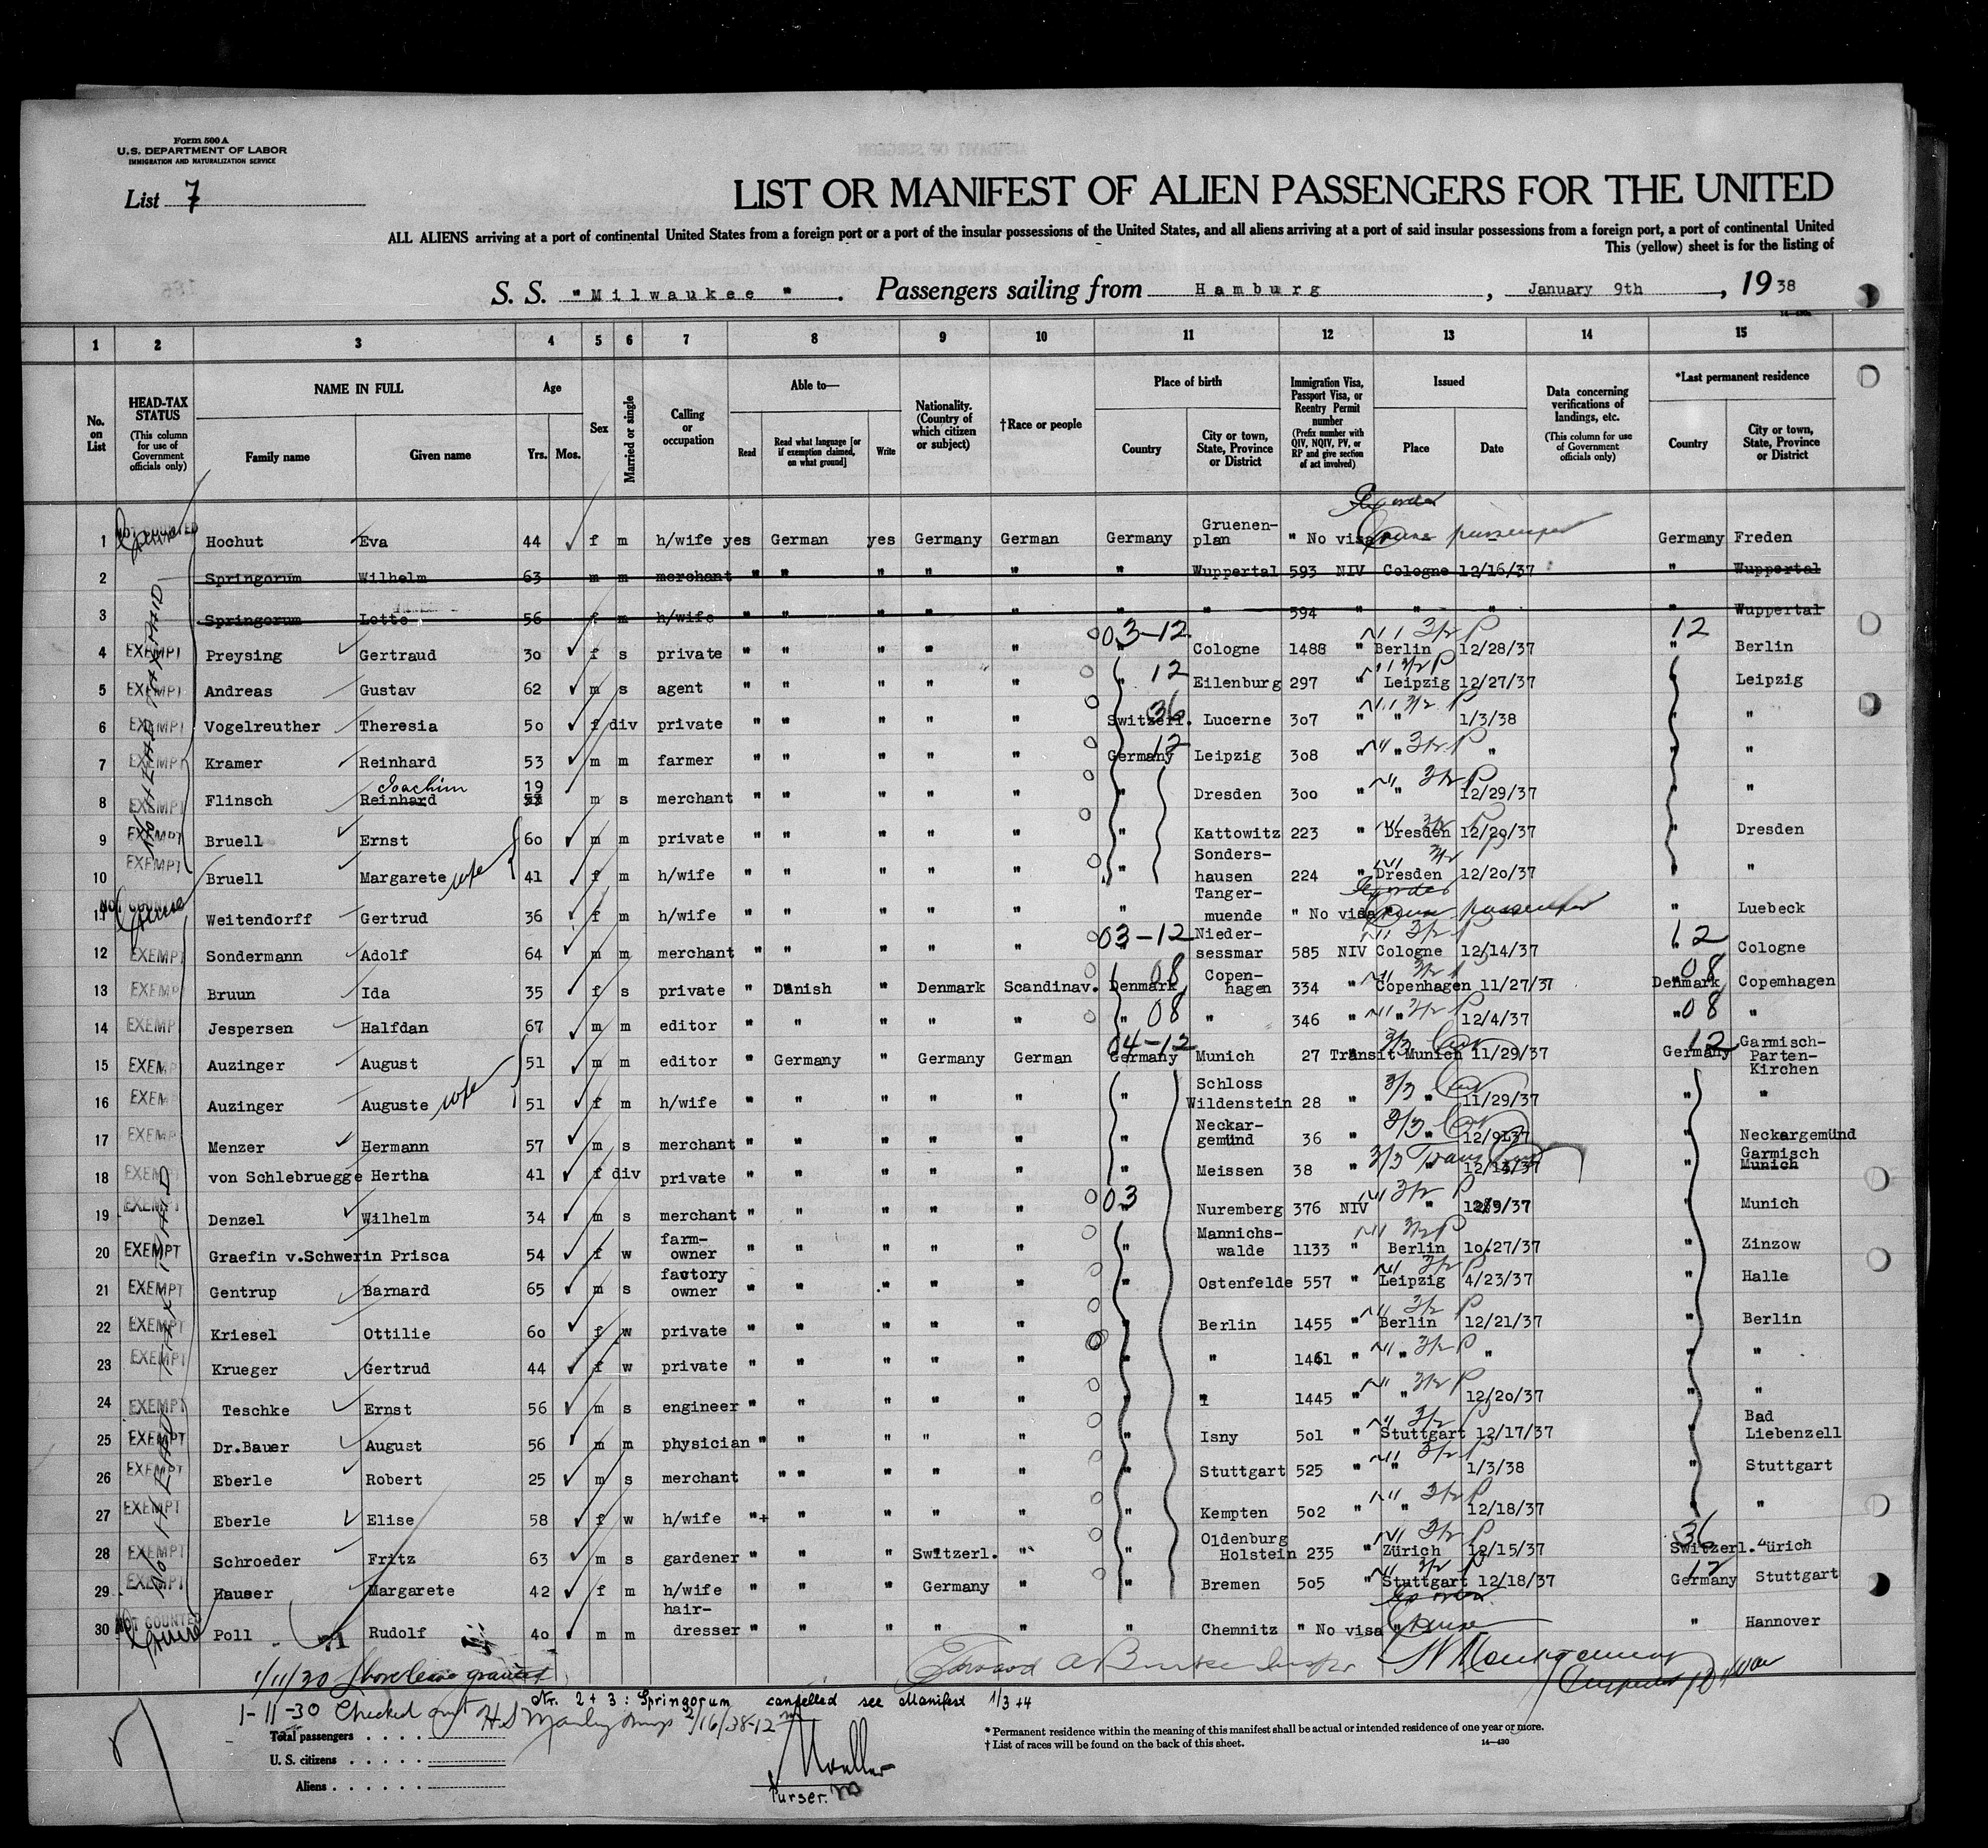 Form 500 A
U. S. DEPARTMENT OF LABOR
IMMIGRATION AND NATURALIZATION SERVICE
List 7
LIST OR MANIFEST OF ALIEN PASSENGERS FOR THE UNITED
ALL ALIENS arriving at a port of continental United States from a foreign port or a port of the insular possessions of the United States, and all aliens arriving at a port of said insular possessions from a foreign port, a port of continental United
This (yellow) sheet is for the listing of
S. S. "Milwaukee" . Passengers sailing from Hamburg , January 9th , 19 38
1 2 3 4 5 6 7 8 9 10 11 12 13 14 15
No. on List
HEAD-TAX STATUS (This column for use of Government officials only)
NAME IN FULL Family name Given name
Age Yrs. Mos.
Sex
Married or single
Calling or occupation
Able to— Read Read what language [or if exemption claimed, on what ground] Write
Nationality. (Country of which citizen or subject)
†Race or people
Place of birth Country City or town, State, Province or District
Immigration Visa, Passport Visa, or Reentry Permit number (Prefix number with QIV, NQIV, PV, or RP and give section of act involved)
Issued Place Date
Data concerning verifications of landings, etc. (This column for use of Government officials only)
*Last permanent residence Country City or town, State, Province or District
1 NOT COUNTED Hochut Eva 44 f m h/wife yes German yes Germany German Germany Gruenen-plan " No visa Cruise passenger Germany Freden
2 Springorum Wilhelm 63 m m merchant " " " " " " Wuppertal 593 NIV Cologne 12/16/37 " Wuppertal
3 Springorum Lotte 56 f m h/wife " " " " " " " 594 " " " " Wuppertal
4 EXEMPT Preysing Gertraud 30 f s private " " " " " 03-12 " Cologne 1488 " Berlin 12/28/37 3/2 P 12 " Berlin
5 EXEMPT Andreas Gustav 62 m s agent " " " " " 12 " Eilenburg 297 " Leipzig 12/27/37 3/2 P " Leipzig
6 EXEMPT Vogelreuther Theresia 50 f div private " " " " " 36 Switzerl. Lucerne 307 " " 1/3/38 3/2 P " "
7 EXEMPT Kramer Reinhard 53 m m farmer " " " " " 12 Germany Leipzig 308 " " " 3/2 P " "
8 EXEMPT Flinsch Reinhard Joachim 53 19 m s merchant " " " " " " Dresden 300 " " 12/29/37 3/2 P " "
9 EXEMPT Bruell Ernst 60 m m private " " " " " " Kattowitz 223 " Dresden 12/20/37 3/2 P " Dresden
10 EXEMPT Bruell Margarete wife 41 f m h/wife " " " " " " Sonders-hausen 224 " Dresden 12/20/37 3/2 " "
11 NOT COUNTED Weitendorff Gertrud 36 f m h/wife " " " " " " Tanger-muende " No visa " Cruise passenger " Luebeck
12 EXEMPT Sondermann Adolf 64 m m merchant " " " " " 03-12 " Nieder-sessmar 585 NIV Cologne 12/14/37 3/2 P 12 " Cologne
13 EXEMPT Bruun Ida 35 f s private " Danish " Denmark Scandinav. 08 Denmark Copen-hagen 334 " Copenhagen 11/27/37 3/2 08 Denmark Copemhagen
14 EXEMPT Jespersen Halfdan 67 m m editor " " " " " 08 " " 346 " " 12/4/37 3/2 P 08 " "
15 EXEMPT Auzinger August 51 m m editor " Germany " Germany German 04-12 Germany Munich 27 Transit Munich 11/29/37 3/3 12 Germany Garmisch-Parten-Kirchen
16 EXEMPT Auzinger Auguste wife 51 f m h/wife " " " " " " Schloss Wildenstein 28 " " 11/29/37 3/3 " "
17 EXEMPT Menzer Hermann 57 m s merchant " " " " " " Neckar-gemünd 36 " " 12/9/37 3/3 " Neckargemünd
18 EXEMPT von Schlebruegge Hertha 41 f div private " " " " " " Meissen 38 " " 12/13/37 3/3 " Munich Garmisch
19 EXEMPT Denzel Wilhelm 34 m s merchant " " " " " 03 " Nuremberg 376 NIV " 3/2 P " Munich
20 EXEMPT Graefin v.Schwerin Prisca 54 f w farm-owner " " " " " " Mannichs-walde 1133 " Berlin 10.27/37 3/2 P " Zinzow
21 EXEMPT Gentrup Barnard 65 m s factory owner " " " " " " Ostenfelde 557 " Leipzig 4/23/37 3/2 P " Halle
22 EXEMPT Kriesel Ottilie 60 f w private " " " " " " Berlin 1455 " Berlin 12/21/37 3/2 P " Berlin
23 EXEMPT Krueger Gertrud 44 f w private " " " " " " " 1461 " " " 3/2 P " "
24 EXEMPT Teschke Ernst 56 m s engineer " " " " " " " 1445 " " 12/20/37 3/2 P " "
25 EXEMPT Dr.Bauer August 56 m m physician " " " " " " Isny 501 " Stuttgart 12/17/37 3/2 P " Bad Liebenzell
26 EXEMPT Eberle Robert 25 m s merchant " " " " " " Stuttgart 525 " " 1/3/38 3/2 P " Stuttgart
27 EXEMPT Eberle Elise 58 f w h/wife "+ " " " " " Kempten 502 " " 12/18/37 3/2 P " "
28 EXEMPT Schroeder Fritz 63 m s gardener " " " Switzerl. " " Oldenburg Holstein 235 " Zürich 12/15/37 3/2 P 36 Switzerl. Zürich
29 EXEMPT Hauser Margarete 42 f m h/wife " " " Germany " " Bremen 505 " Stuttgart 12/18/37 3/2 P 12 Germany Stuttgart
30 NOT COUNTED Poll Rudolf 40 m m hair-dresser " " " " " " Chemnitz " No visa " Cruise " Hannover
1/11/30 Shore leave granted
Nr. 2 + 3 : Springorum cancelled see Manifest 1/3 + 4
1-11-30 Checked out 2/16/38-12
Total passengers
U. S. citizens
Aliens
Moeller
Purser.
* Permanent residence within the meaning of this manifest shall be actual or intended residence of one year or more.
† List of races will be found on the back of this sheet.
14—430